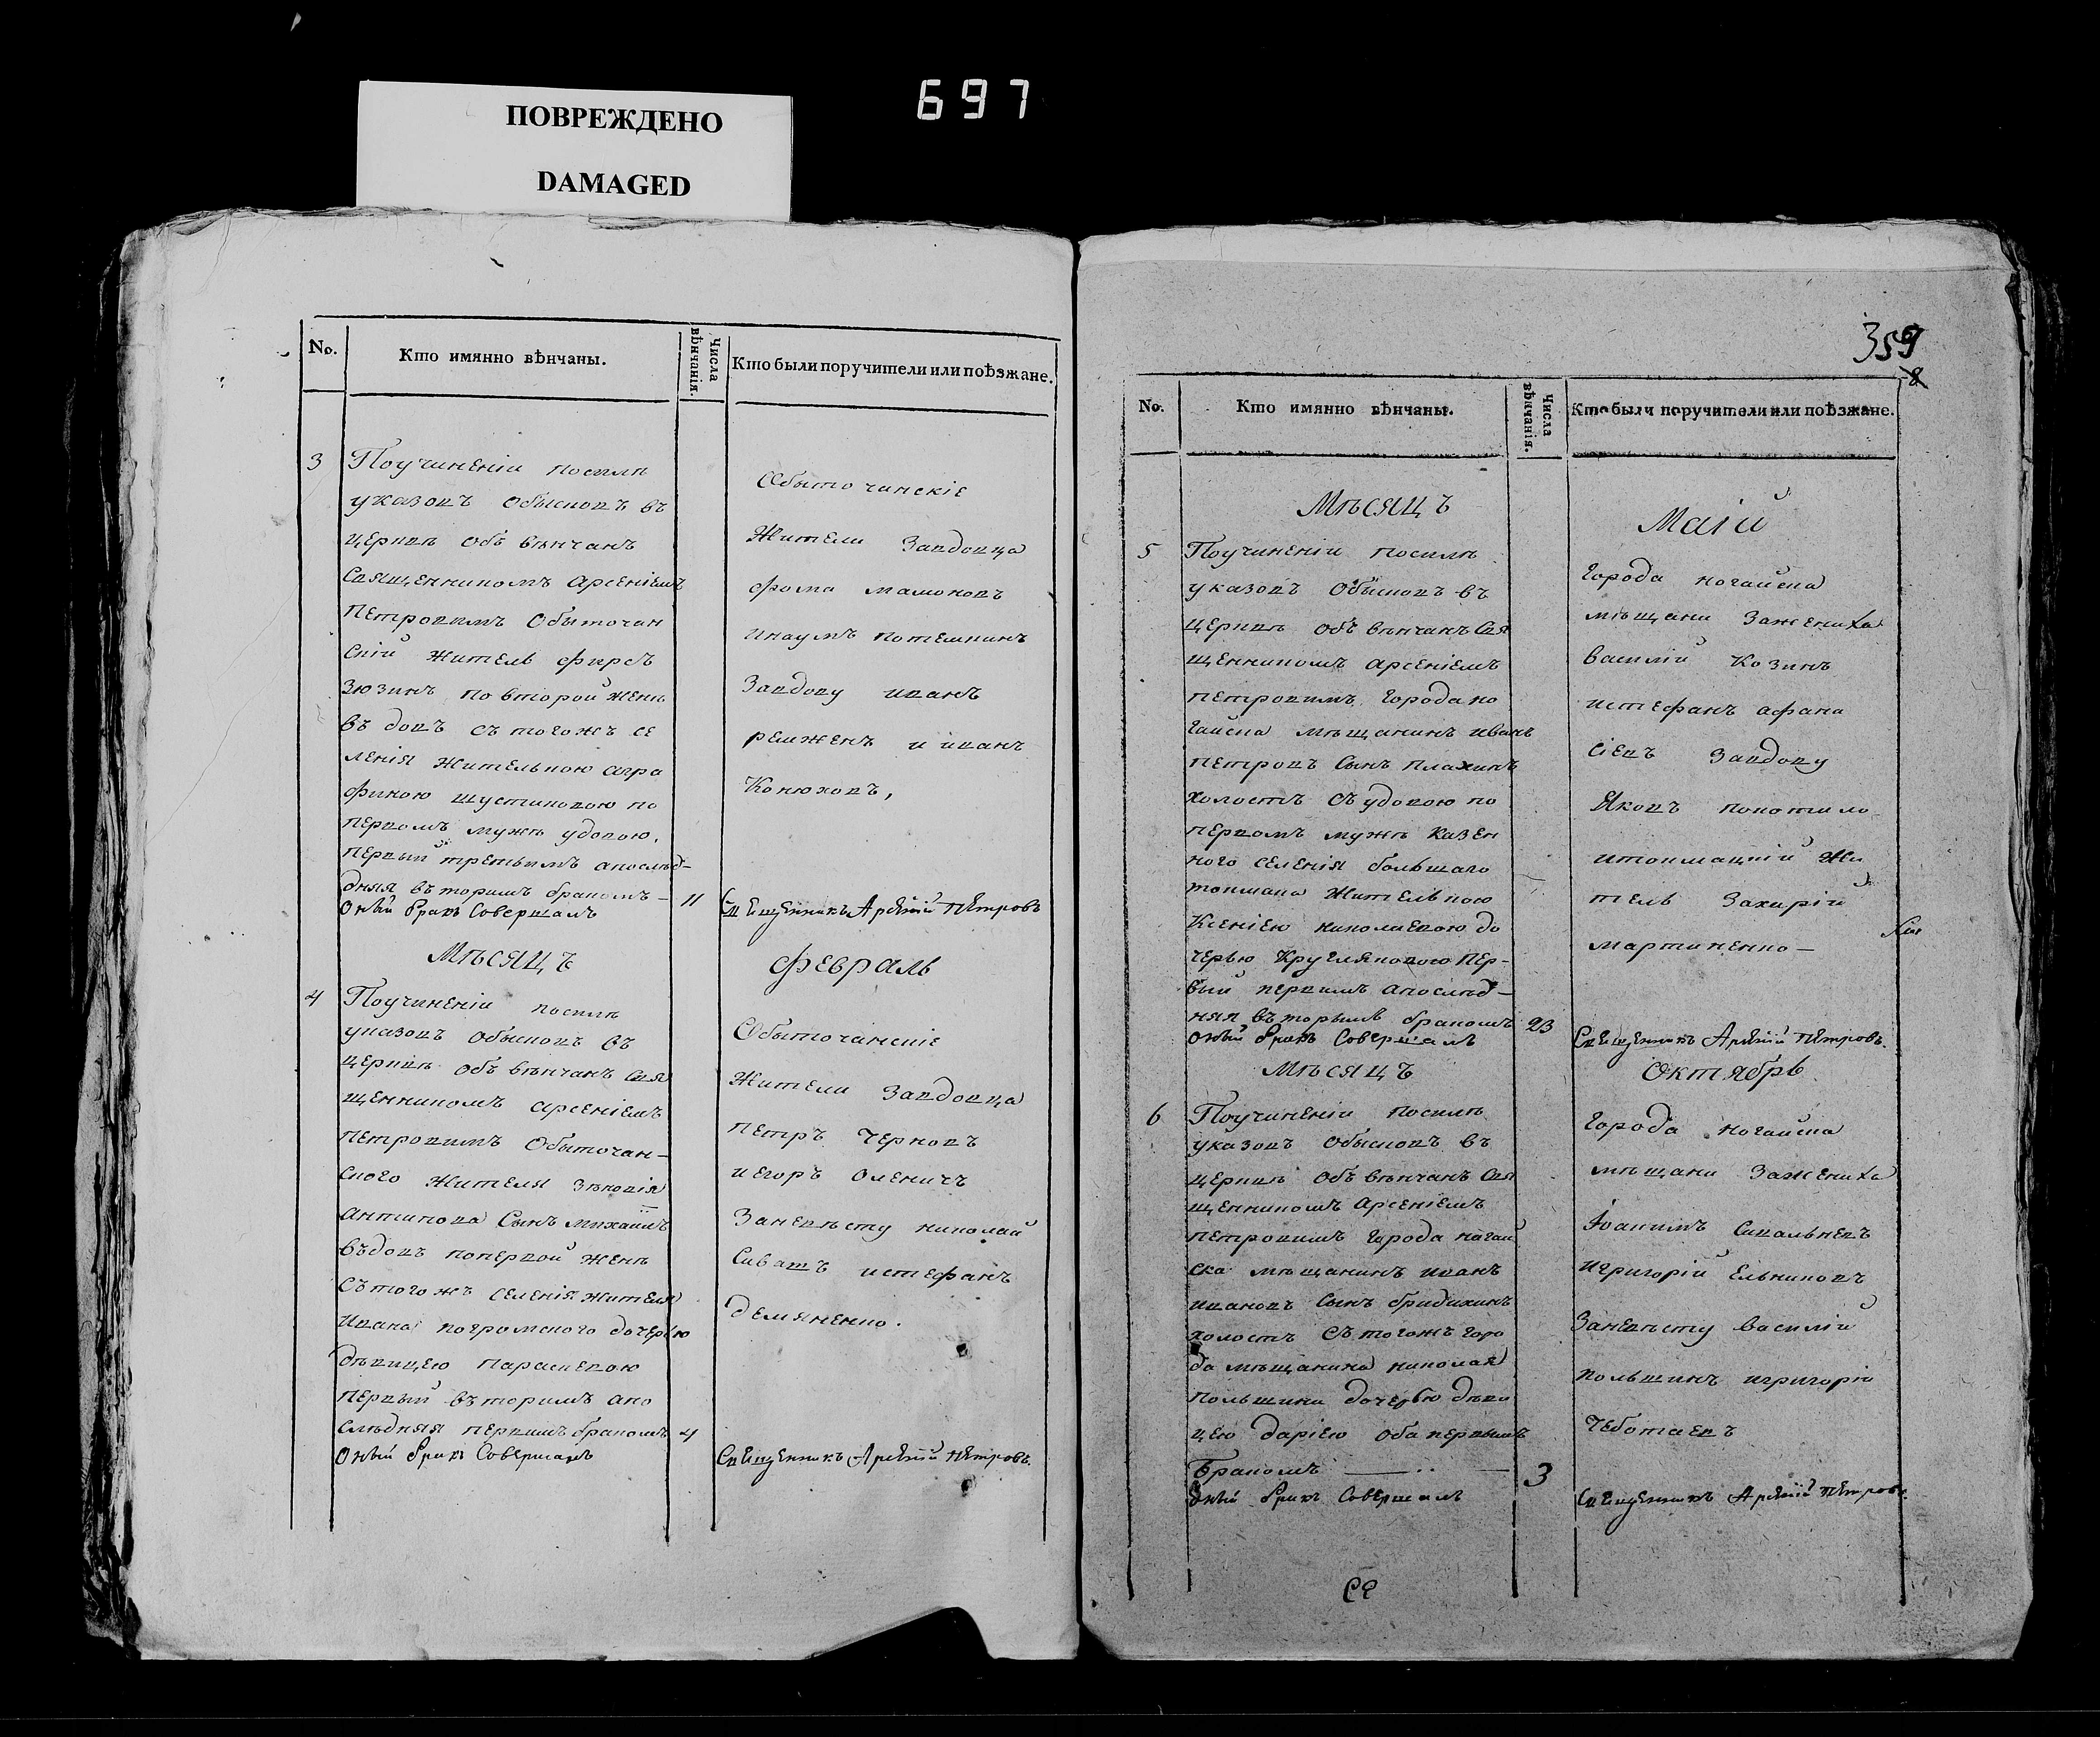 ПОВРЕЖДЕНО
DAMAGED
697
No.
Кто имянно вѣнчаны.
Числа вѣнчанія.
Кто были поручители или поѣзжане.
3
Поучиненіи посилѣ
указовъ обысковъ въ
церквѣ объ вѣнчанъ
Священникомъ Арсеніемъ
Петровимъ Обыточан
скій житель Фирсъ
Зюзинъ по второй женѣ
въ довъ съ тогожъ се
ленія жителькою агра
финою шустиковою по
первомъ мужѣ удовою,
первый третьимъ апослѣд-
дняя въторимъ бракомъ -
11
Оный бракъ Совершалъ
Обыточанскіе
Жители Завдовца
фома мамоновъ
инаумъ потемкинъ
Завдову иванъ
ремженъ и иванъ
Конюховъ,
Священникъ Арсеній Петровъ
Мѣсяцъ
Февраль
4
Поучиненіи посилѣ
указовъ обысковъ въ
церквѣ объ вѣнчанъ Свя
щенникомъ арсеніемъ
петровимъ Обыточан-
ского жителя Зѣновія
антипова Сынъ михаилъ
въдовъ попервой женѣ
Сътогожъ селенія жителя
Ивана погромского дочерю
дѣвицею параскевою
первый въторимъ апо
слѣдняя первимъ бракомъ
4
Оный бракъ Совершалъ
Обыточанскіе
Жители Завдовца
петръ Черновъ
иегоръ Оленичъ
Заневѣсту николай
Сивашъ истефанъ
демяненко.
Священникъ Арсеній Петровъ.
359
8
No.
Кто имянно вѣнчаны.
Числа вѣнчанія.
Кто были поручители или поѣзжане.
Мѣсяцъ
Маій
5
Поучиненіи посилѣ
указовъ Обысковъ въ
церквѣ объ вѣнчанъ Свя
щенникомъ арсеніемъ
петровимъ города но
гайска мѣщанинъ иванъ
петровъ Сынъ плахинъ
холостъ съ удовою по
первомъ мужѣ казен
ного селенія большаго
токмака жителькою
Ксеніею николаевою до
черью Кругляковою пер-
вый первимъ апослѣд-
няя въторымъ бракомъ
23
Оный бракъ Совершалъ
Города ногайска
мѣщани Зажениха
василій Козинъ
истефанъ афана
сіевъ Завдову
Яковъ
итокмацкій жи
тель Захирій
мартиненко -
Священникъ Арсеній Петровъ.
Мѣсяцъ
Октябрь
6
Поучиненіи посилѣ
указовъ обысковъ въ
церквѣ объ вѣнчанъ Свя
щенникомъ Арсеніемъ
петровимъ города ногай
ска мѣщанинъ иванъ
ивановъ Сынъ бридихинъ
холостъ Сътогожъ горо
да мѣщанина николая
польшина дочерью дѣви
цею дарією оба первымъ
Бракомъ
3
Оный бракъ Совершалъ
Города ногайска
мѣщани Зажениха
Іоакимъ Сикальневъ
игригорій Ельниковъ
Заневѣсту Василій
польшинъ игригорій
Чеботаевъ
Священникъ Арсеній Петровъ.